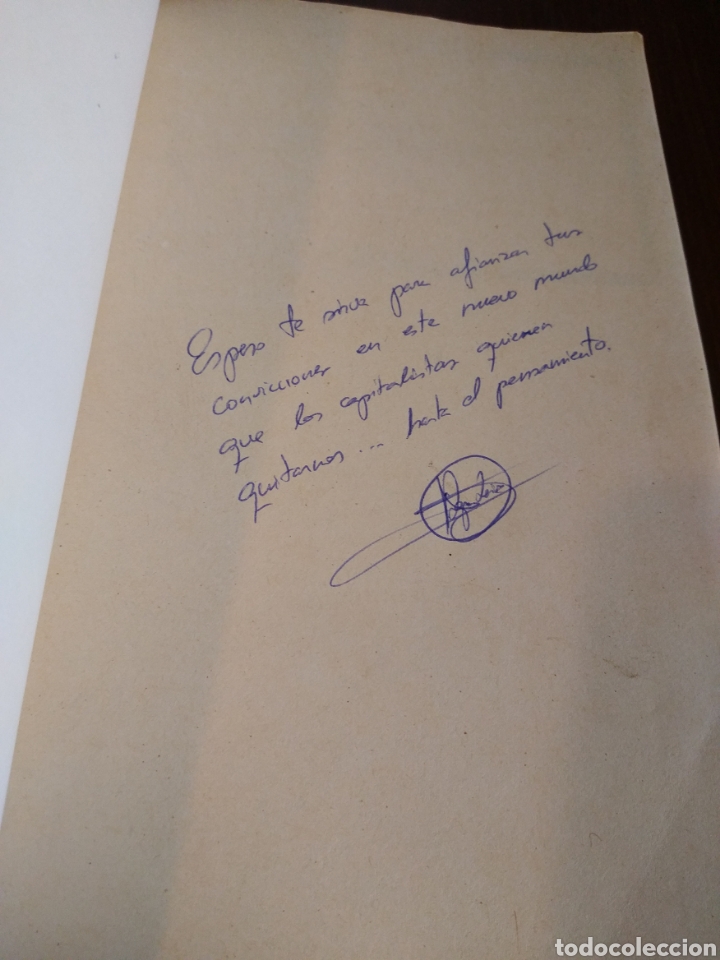 Espero te sirva para afianzar tus
convicciones en este nuevo mundo
que los capitalistas quieren
quitarnos... hasta el pensamiento.
todocoleccion